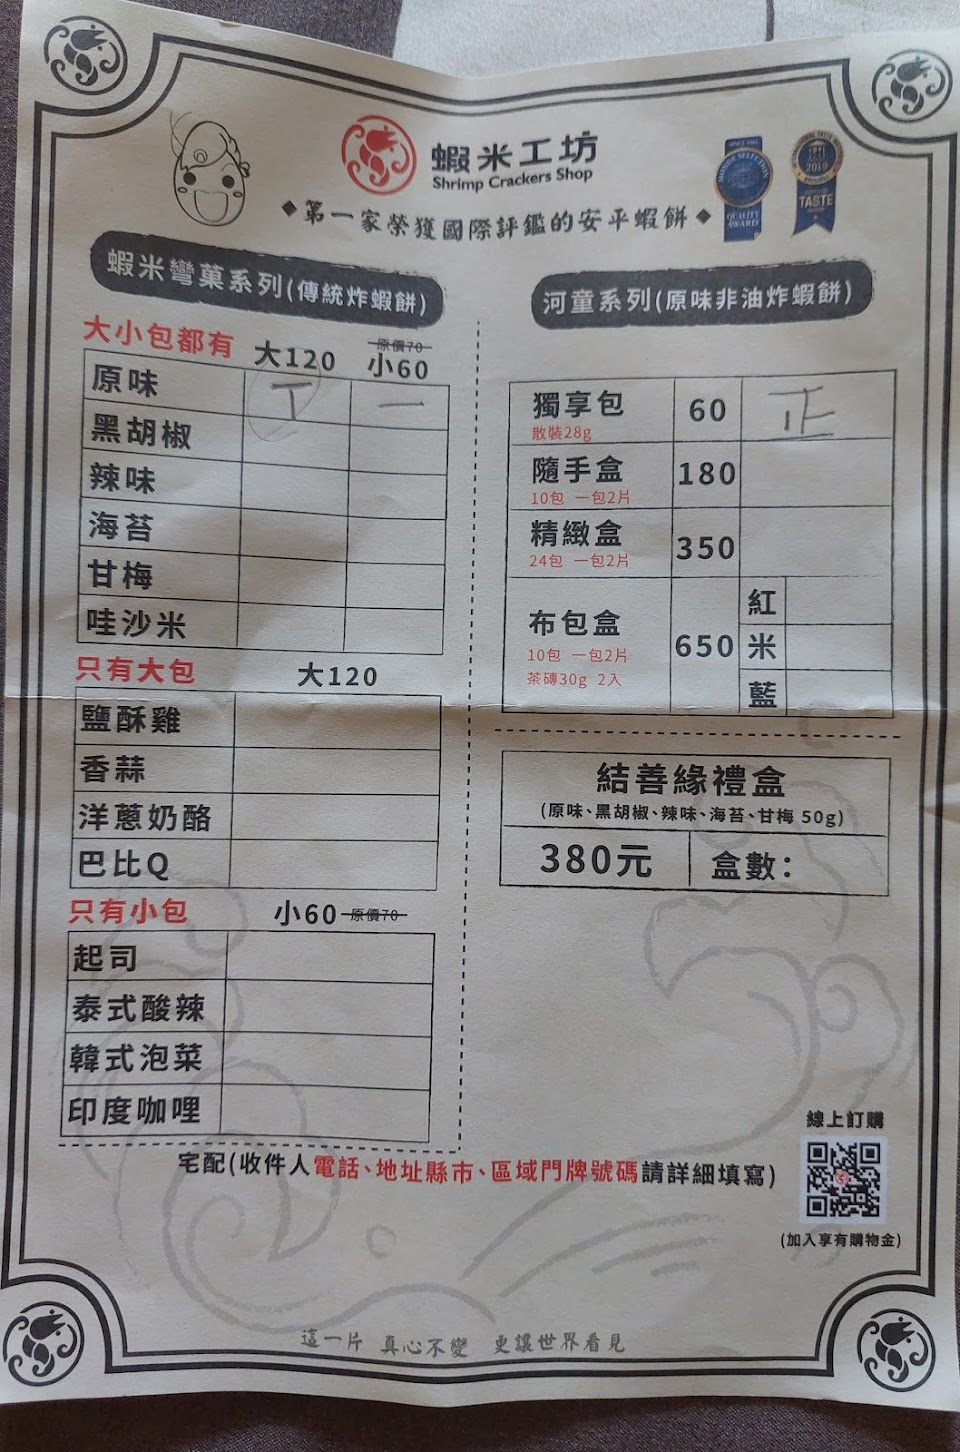 蝦米工坊
Shrimp Crackers Shop
◆第一家榮獲國際評鑑的安平蝦餅◆
MONDE SELECTION
QUALITY AWARD
2019
TASTE
蝦米彎菓系列(傳統炸蝦餅)
大小包都有 大120 原價70 小60
原味 一
黑胡椒
辣味
海苔
甘梅
哇沙米
只有大包 大120
鹽酥雞
香蒜
洋蔥奶酪
巴比Q
只有小包 小60 原價70
起司
泰式酸辣
韓式泡菜
印度咖哩
河童系列(原味非油炸蝦餅)
獨享包 60 正
散裝28g
隨手盒 180
10包 一包2片
精緻盒 350
24包 一包2片
布包盒 650
10包 一包2片
茶磚30g 2入
紅
米
藍
結善緣禮盒
(原味、黑胡椒、辣味、海苔、甘梅 50g)
380元 盒數:
宅配(收件人電話、地址縣市、區域門牌號碼請詳細填寫)
線上訂購
(加入享有購物金)
這一片 真心不變 更讓世界看見